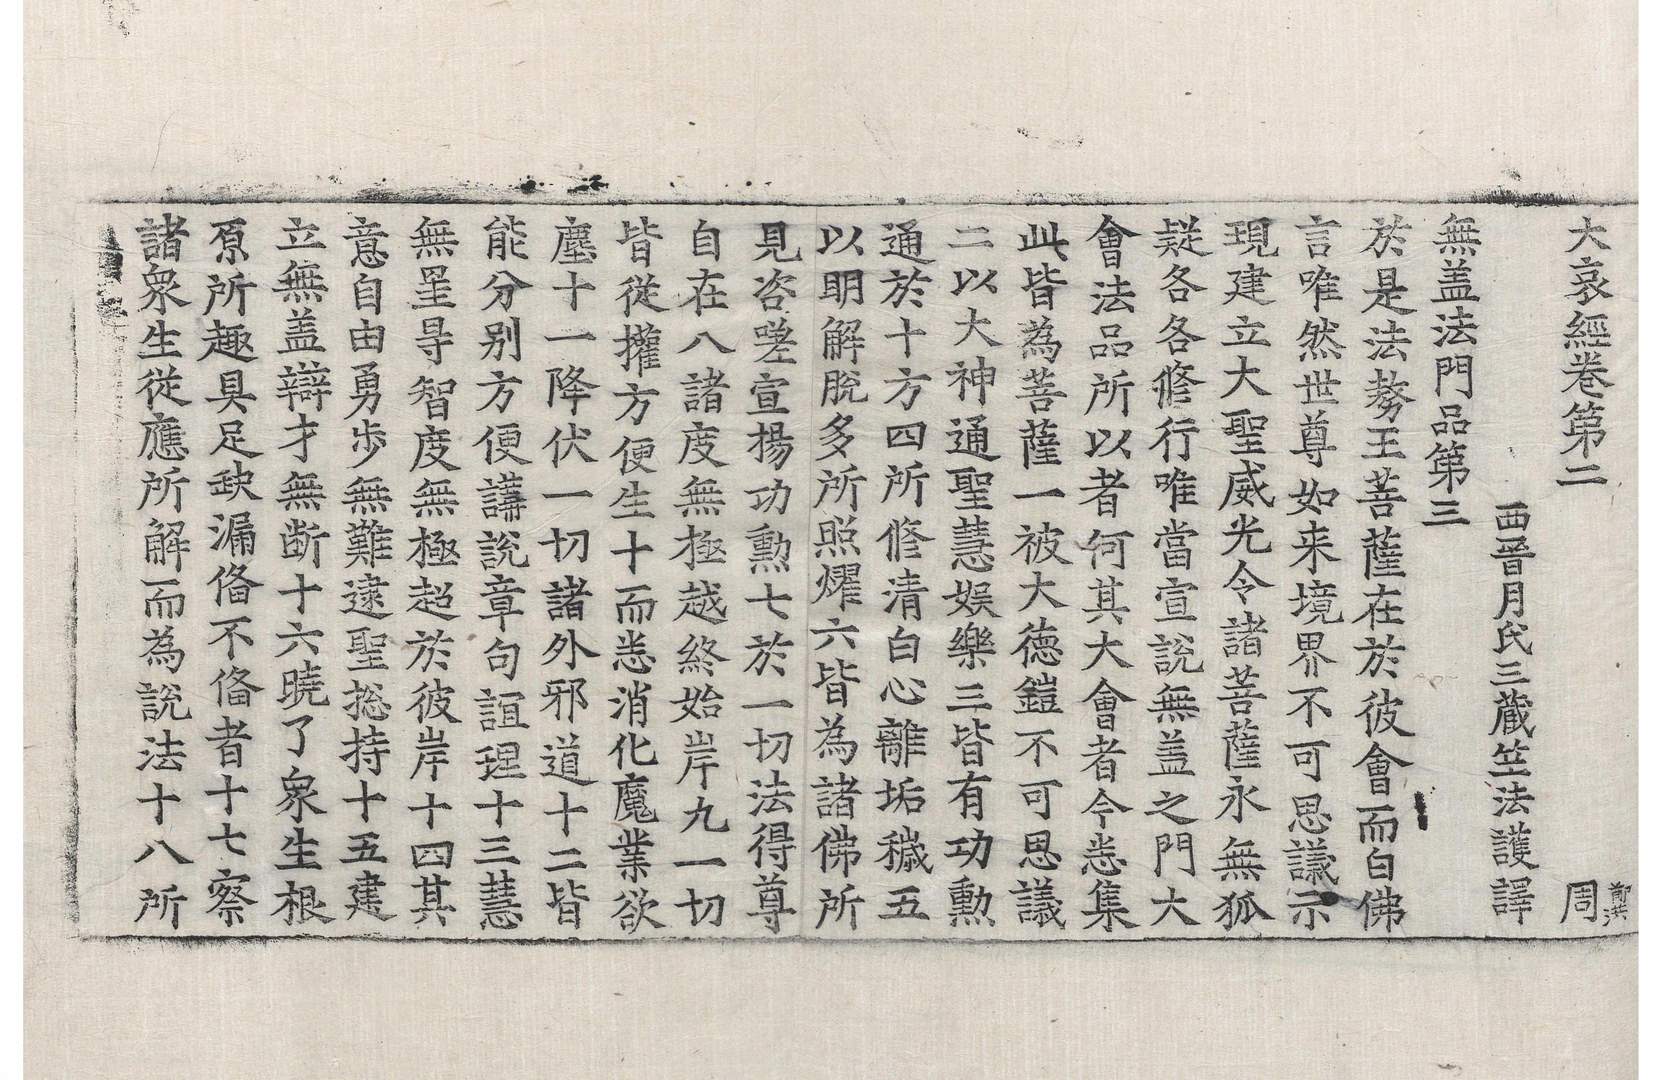 大哀經卷第二 周
西晉月氏三藏竺法護譯
無盖法門品第三
於是法䓝王菩薩在於彼會而白佛
言唯然世尊如来境界不可思議示
現建立大聖威光令諸菩薩永無狐
疑各各修行唯當宣說無盖之門大
會法品所以者何其大會者今悉集
此皆為菩薩一被大德鎧不可思議
二以大神通聖慧娛樂三皆有功勳
通於十方四所修清白心離垢穢五
以明解脫多所照燿六皆為諸佛所
見咨嗟宣揚功勳七於一切法得尊
自在八諸度無極越終始岸九一切
皆從權方便生十而悉消化魔業欲
塵十一降伏一切諸外邪道十二皆
能分别方便講說章句誼理十三慧
無罣㝵智度無極超於彼岸十四其
意自由勇步無難逮聖捴持十五建
立無盖辯才無断十六曉了衆生根
原所趣具足缺漏俻不俻者十七察
諸衆生從應所解而為說法十八所